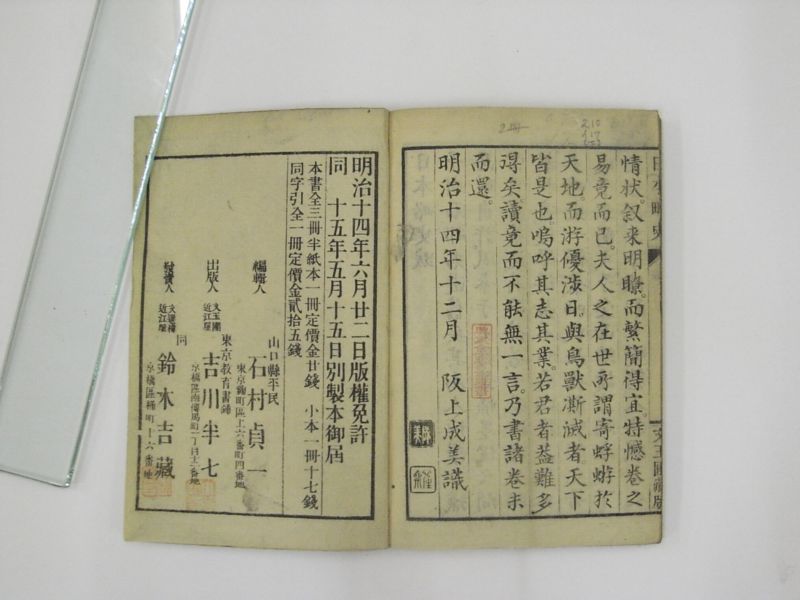 情状。叙来明瞭。而繁簡得宜。特憾巻之
易竟而已。夫人之在世。所謂寄蜉蝣於
天地。而游優渉日。與鳥獣澌滅者。天下
皆是也。嗚呼其志其業。若君者。蓋難多
得矣。讀竟而不能無一言。乃書諸巻末
而還。
明治十四年十二月 阪上成美識
文玉圃藏版
明治十四年六月廿二日版權免許
同 十五年五月十五日別製本御届
本書全三冊半紙本一冊定價金廿錢 小本一冊十七錢
同字引全一冊定價金貳拾五錢
編輯人
山口縣平民
石村貞一
東京麹町區上六番町四番地
東京教育書鋪
出版人
文玉圃
近江屋
吉川半七
京橋區南傳馬町一丁目十二番地
發賣人
近江屋
同
鈴木吉藏
京橋區桶町十六番地